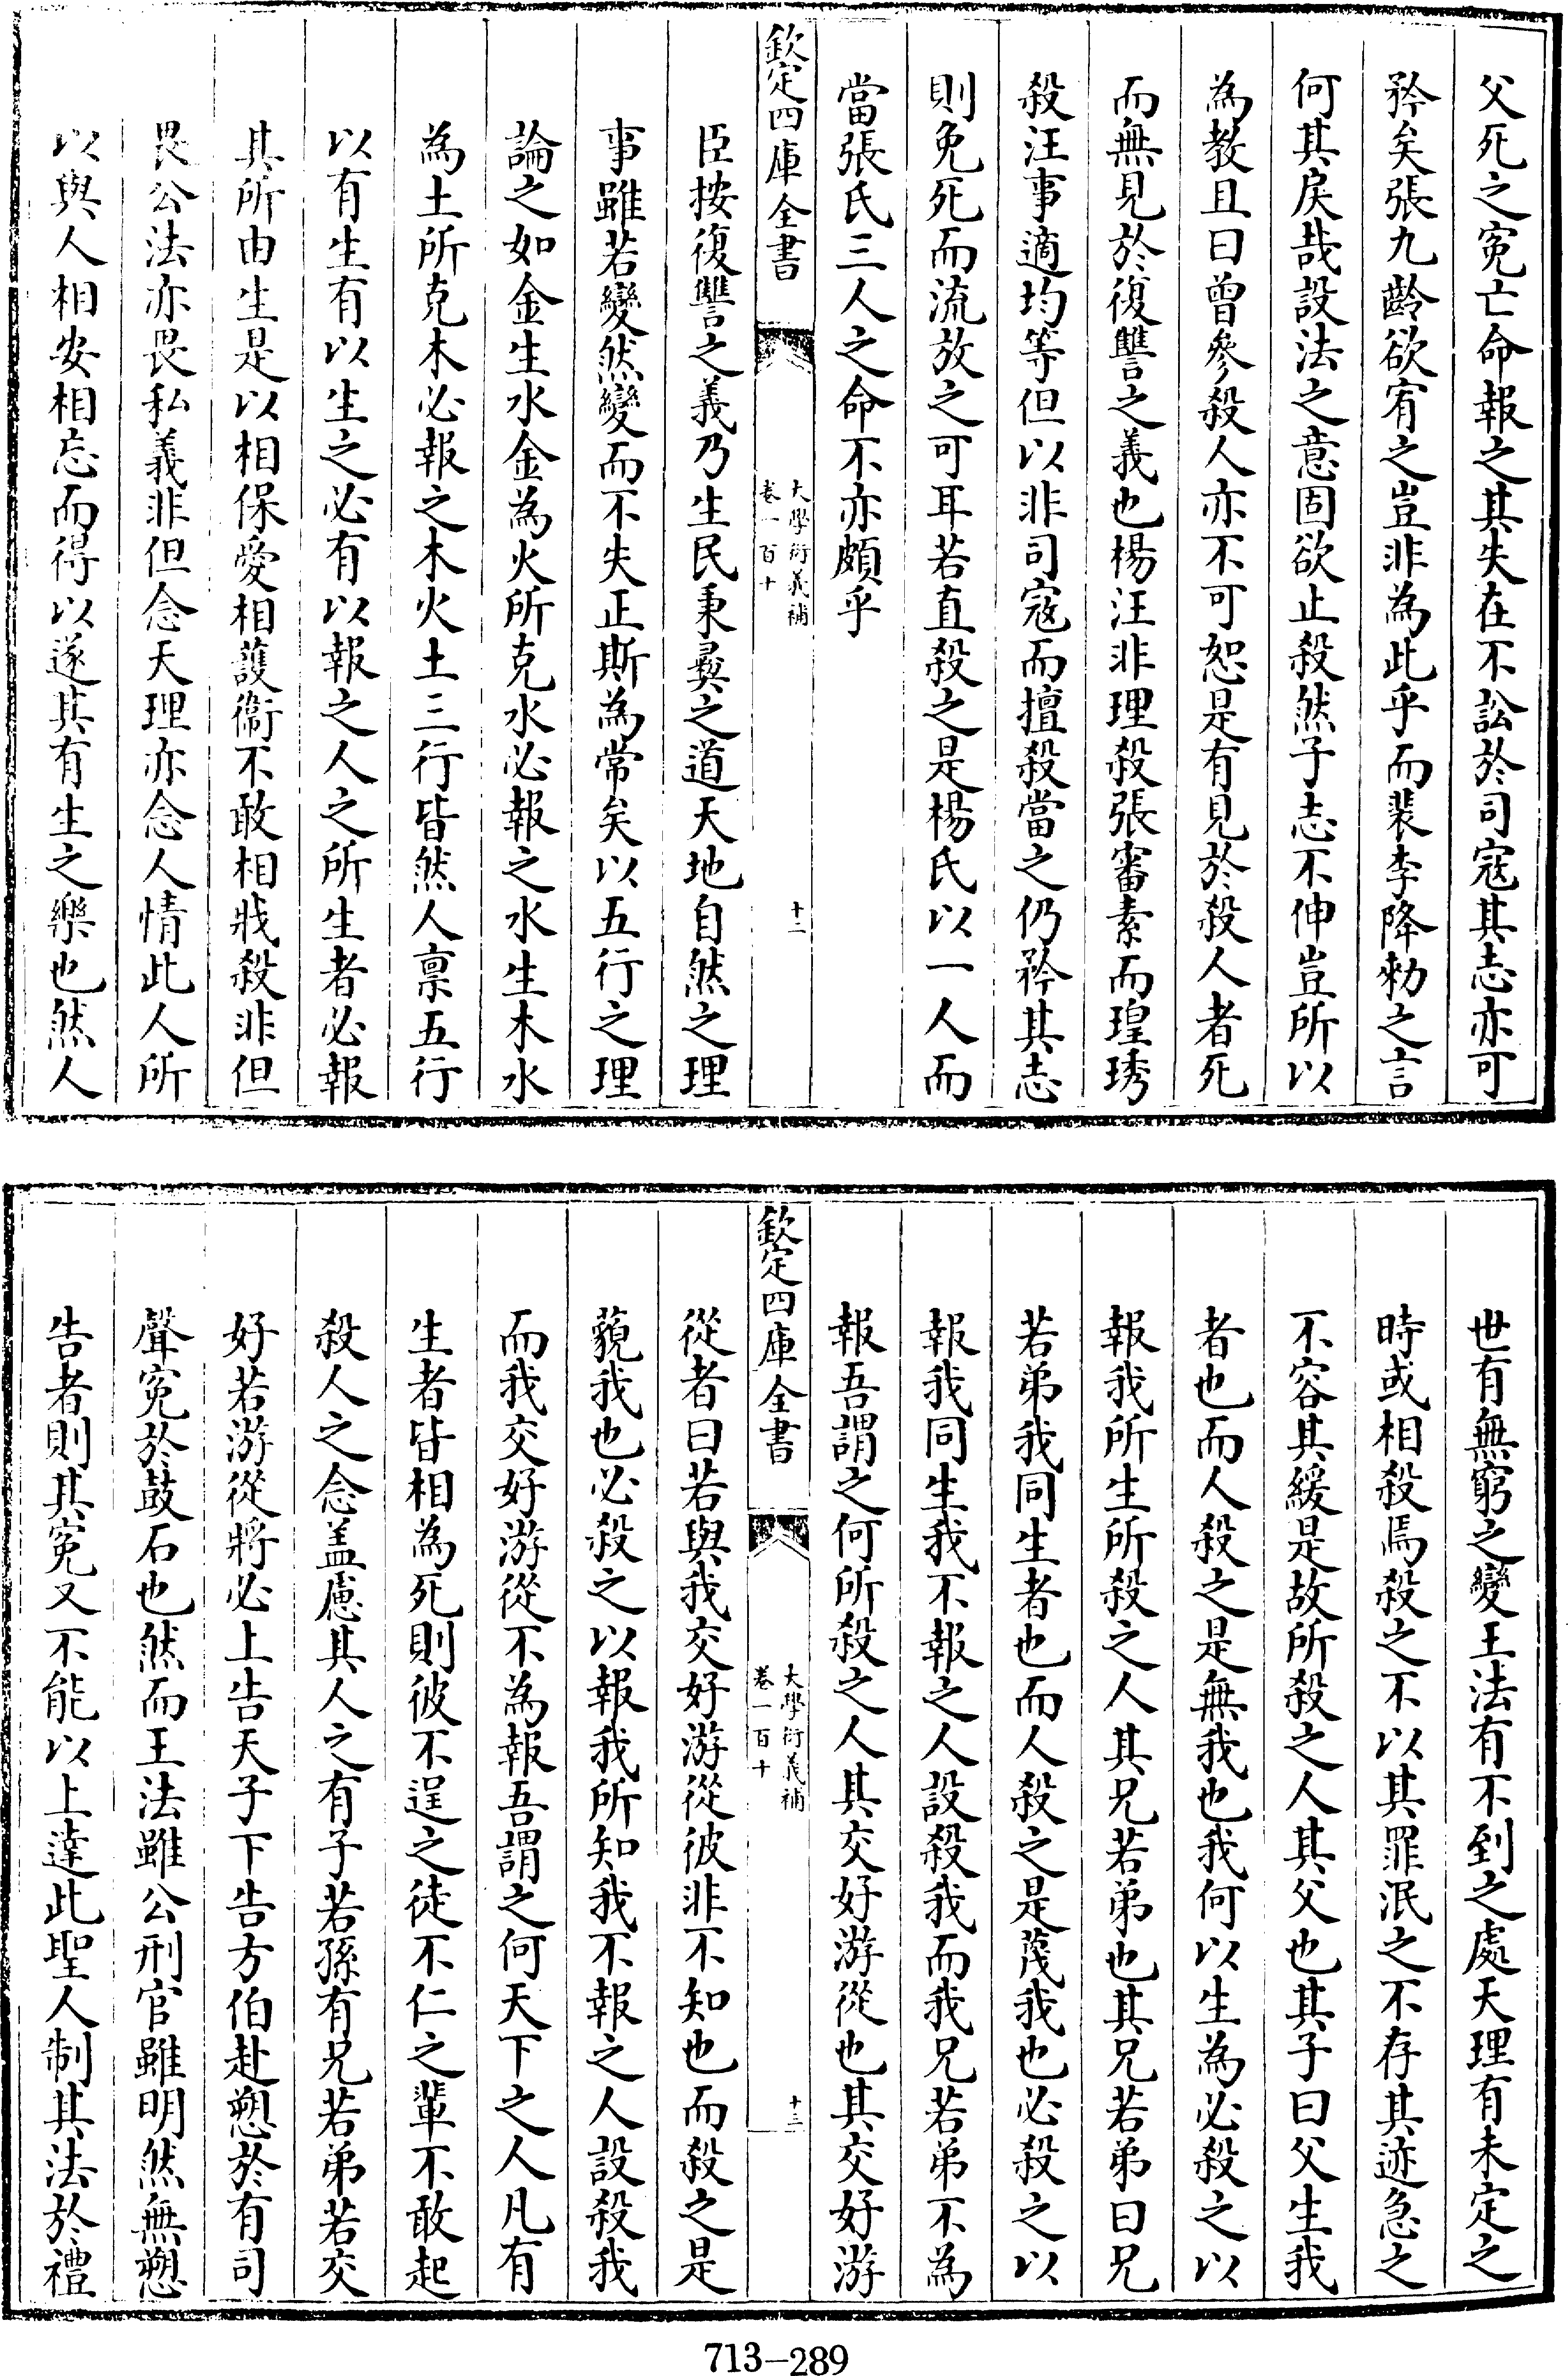 父死之寃亡命報之其失在不訟於司寇其志亦可
矜矣張九齡欲宥之豈非為此乎而裴李降勑之言
何其戾哉設法之意固欲止殺然子志不伸豈所以
為教且曰曾參殺人亦不可恕是有見於殺人者死
而無見於復讐之義也楊汪非理殺張審素而瑝琇
殺汪事適均等但以非司寇而擅殺當之仍矜其志
則免死而流放之可耳若直殺之是楊氏以一人而
當張氏三人之命不亦頗乎
欽定四庫全書
大學衍義補
卷一百十
十二
臣按復讐之義乃生民秉彞之道天地自然之理
事雖若變然變而不失正斯為常矣以五行之理
論之如金生水金為火所克水必報之水生木水
為土所克木必報之木火土三行皆然人禀五行
以有生有以生之必有以報之人之所生者必報
其所由生是以相保愛相護衞不敢相戕殺非但
畏公法亦畏私義非但念天理亦念人情此人所
以與人相安相忘而得以遂其有生之樂也然人
世有無窮之變王法有不到之處天理有未定之
時或相殺焉殺之不以其罪泯之不存其迹急之
不容其緩是故所殺之人其父也其子曰父生我
者也而人殺之是無我也我何以生為必殺之以
報我所生所殺之人其兄若弟也其兄若弟曰兄
若弟我同生者也而人殺之是蔑我也必殺之以
報我同生我不報之人設殺我而我兄若弟不為
報吾謂之何所殺之人其交好游從也其交好游
欽定四庫全書
大學衍義補
卷一百十
十三
從者曰若與我交好游從彼非不知也而殺之是
藐我也必殺之以報我所知我不報之人設殺我
而我交好游從不為報吾謂之何天下之人凡有
生者皆相為死則彼不逞之徒不仁之輩不敢起
殺人之念盖慮其人之有子若孫有兄若弟若交
好若游從將必上告天子下告方伯赴愬於有司
聲寃於鼓石也然而王法雖公刑官雖明然無愬
告者則其寃又不能以上達此聖人制其法於禮
713-289